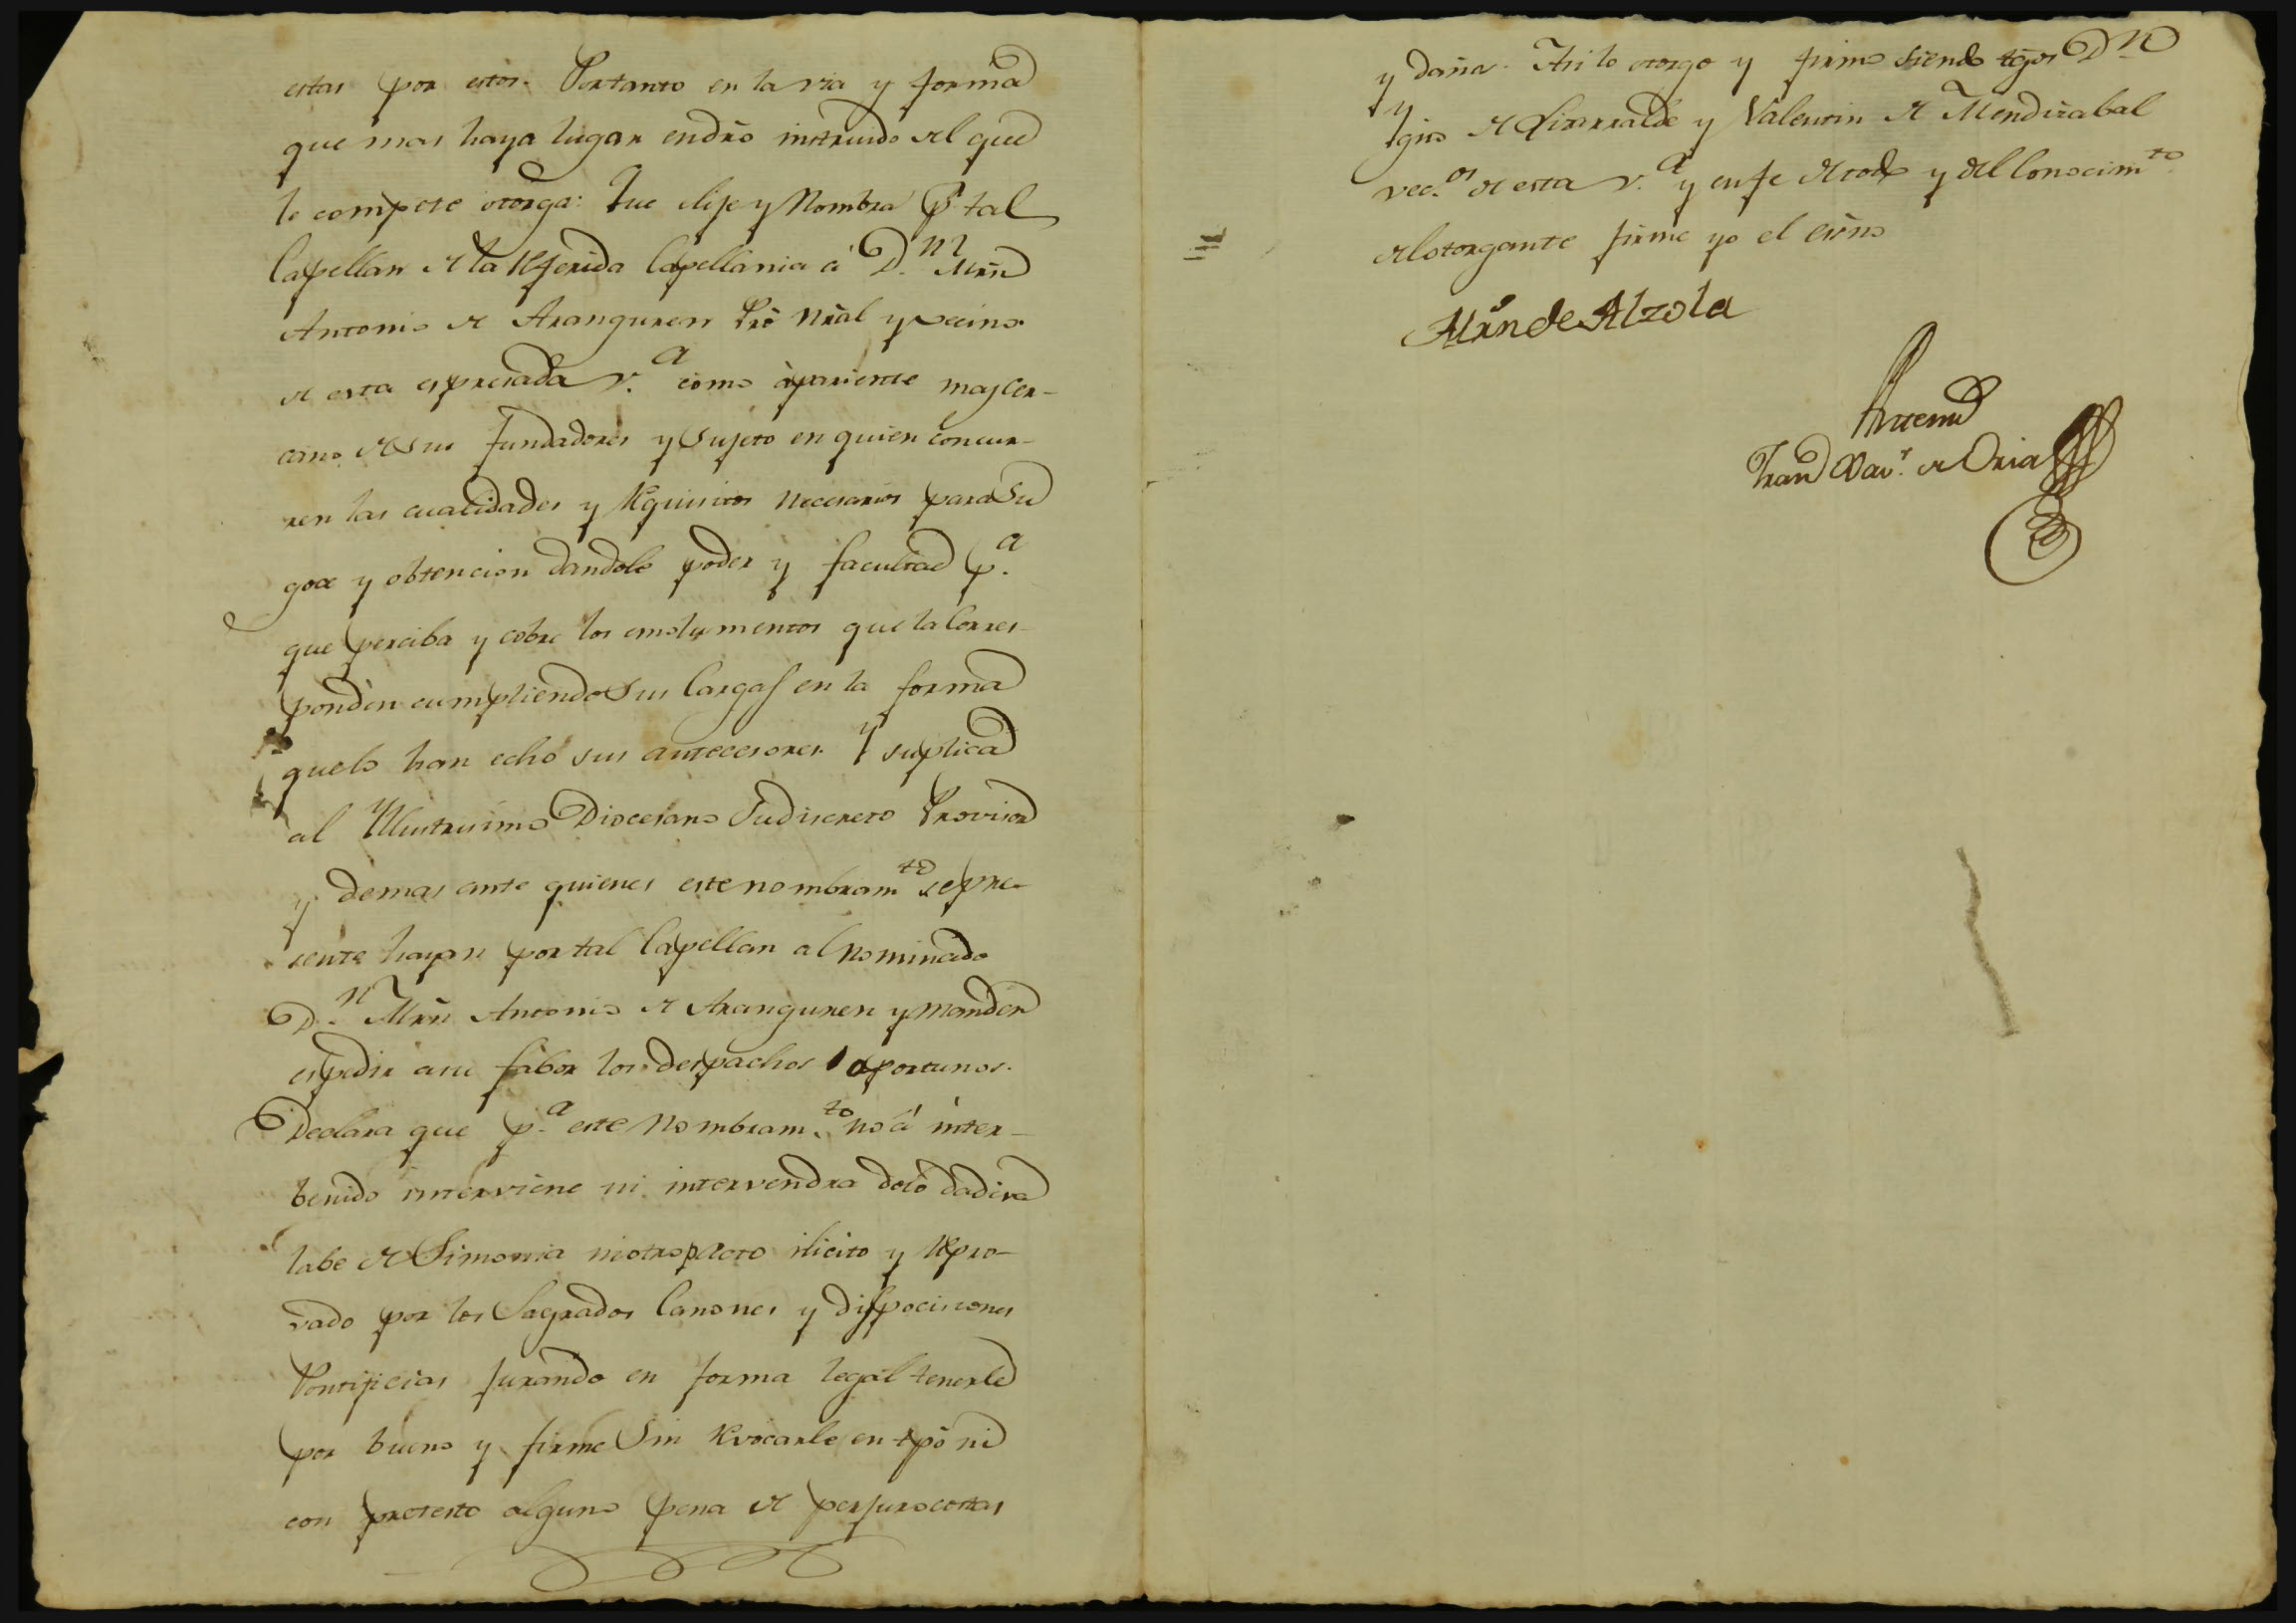 estas por estos. Portanto en la via y forma
que mas haya lugar endrõ instruido del que
le compete otorga: Que elije y Nombra pr. tal
Capellan de la referida Capellania á D.n Mrñ
Antonio de Aranguren Prõ Nrãl y vecino
de esta espresada V.a como á pariente mas cer-
cano de sus fundadores y Sujeto en quien concur-
ren las cualidades y requisitos necesarios para su
goce y obtencion dandole poder y facultad p.a
que perciba y cobre los emolumentos que la corres-
ponden cumpliendo sus Cargas en la forma
quelo han echo sus antecesores. Y suplica
al Yllustrisimo Diocesano Su discreto Provisor
y demas ante quienes este nombram.to sepre-
sente hayan por tal Capellan al nominado
D.n Mrñ Antonio de Aranguren y manden
espedir asu fabor los despachos oportunos.
Declara que p.a este Nombram.to no á inter-
benido interviene ni intervendra dolo dadiva
labe de Simonia niotro pacto ilicito y repro-
vado por los Sagrados Canones y disposiciones
Pontificias jurando en forma legal tenerle
por bueno y firme Sin revocarle en tpõ ni
con pretesto alguno pena de perjuro costas
y daños. Asi lo otorgo y firmo siendo tgos D.n
Ygno de Lizarralde y Valentin de Mendizabal
vec.os de esta V.a y enfe de todo y del Conocim.to
del otorgante firme yo el esño
Mrñ de Alzola
Antemi
Fran Xav.r de Oria